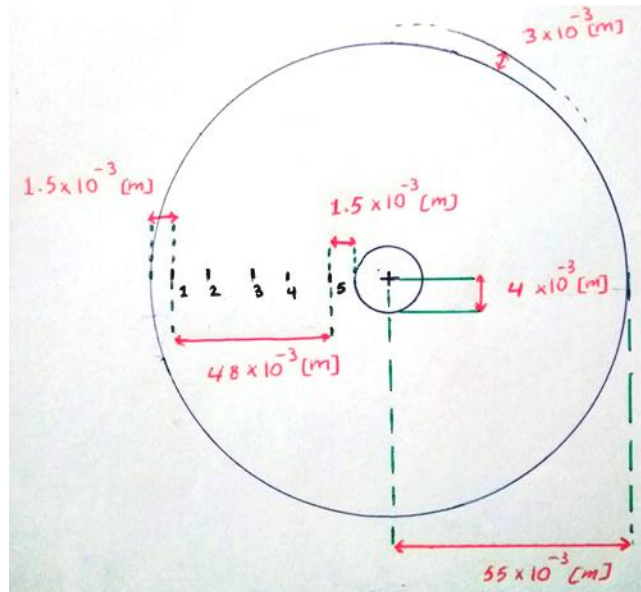 3 x 10⁻³ [m]
1.5 x 10⁻³ [m]
1.5 x 10⁻³ [m]
1 2 3 4 5
4 x 10⁻³ [m]
48 x 10⁻³ [m]
55 x 10⁻³ [m]